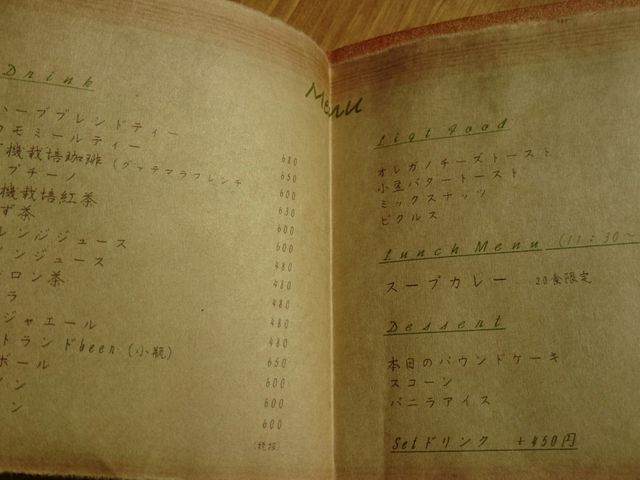 Drink
ハーブブレンドティー 680
カモミールティー 650
機栽培珈琲(グァテマラフレンチ 600
プチーノ 630
機栽培紅茶 600
ず茶 600
レンジジュース 480
ンジュース 480
ロン茶 480
ラ 480
ジャエール 480
トランドbeen(小瓶) 650
ボール 600
ン 600
ン 600
Menu
Ligt food
オレガノチーズトースト
小豆バタートースト
ミックスナッツ
ピクルス
Lunch Menu (11:30~
スープカレー 20食限定
Dessent
本日のパウンドケーキ
スコーン
バニラアイス
Setドリンク +450円